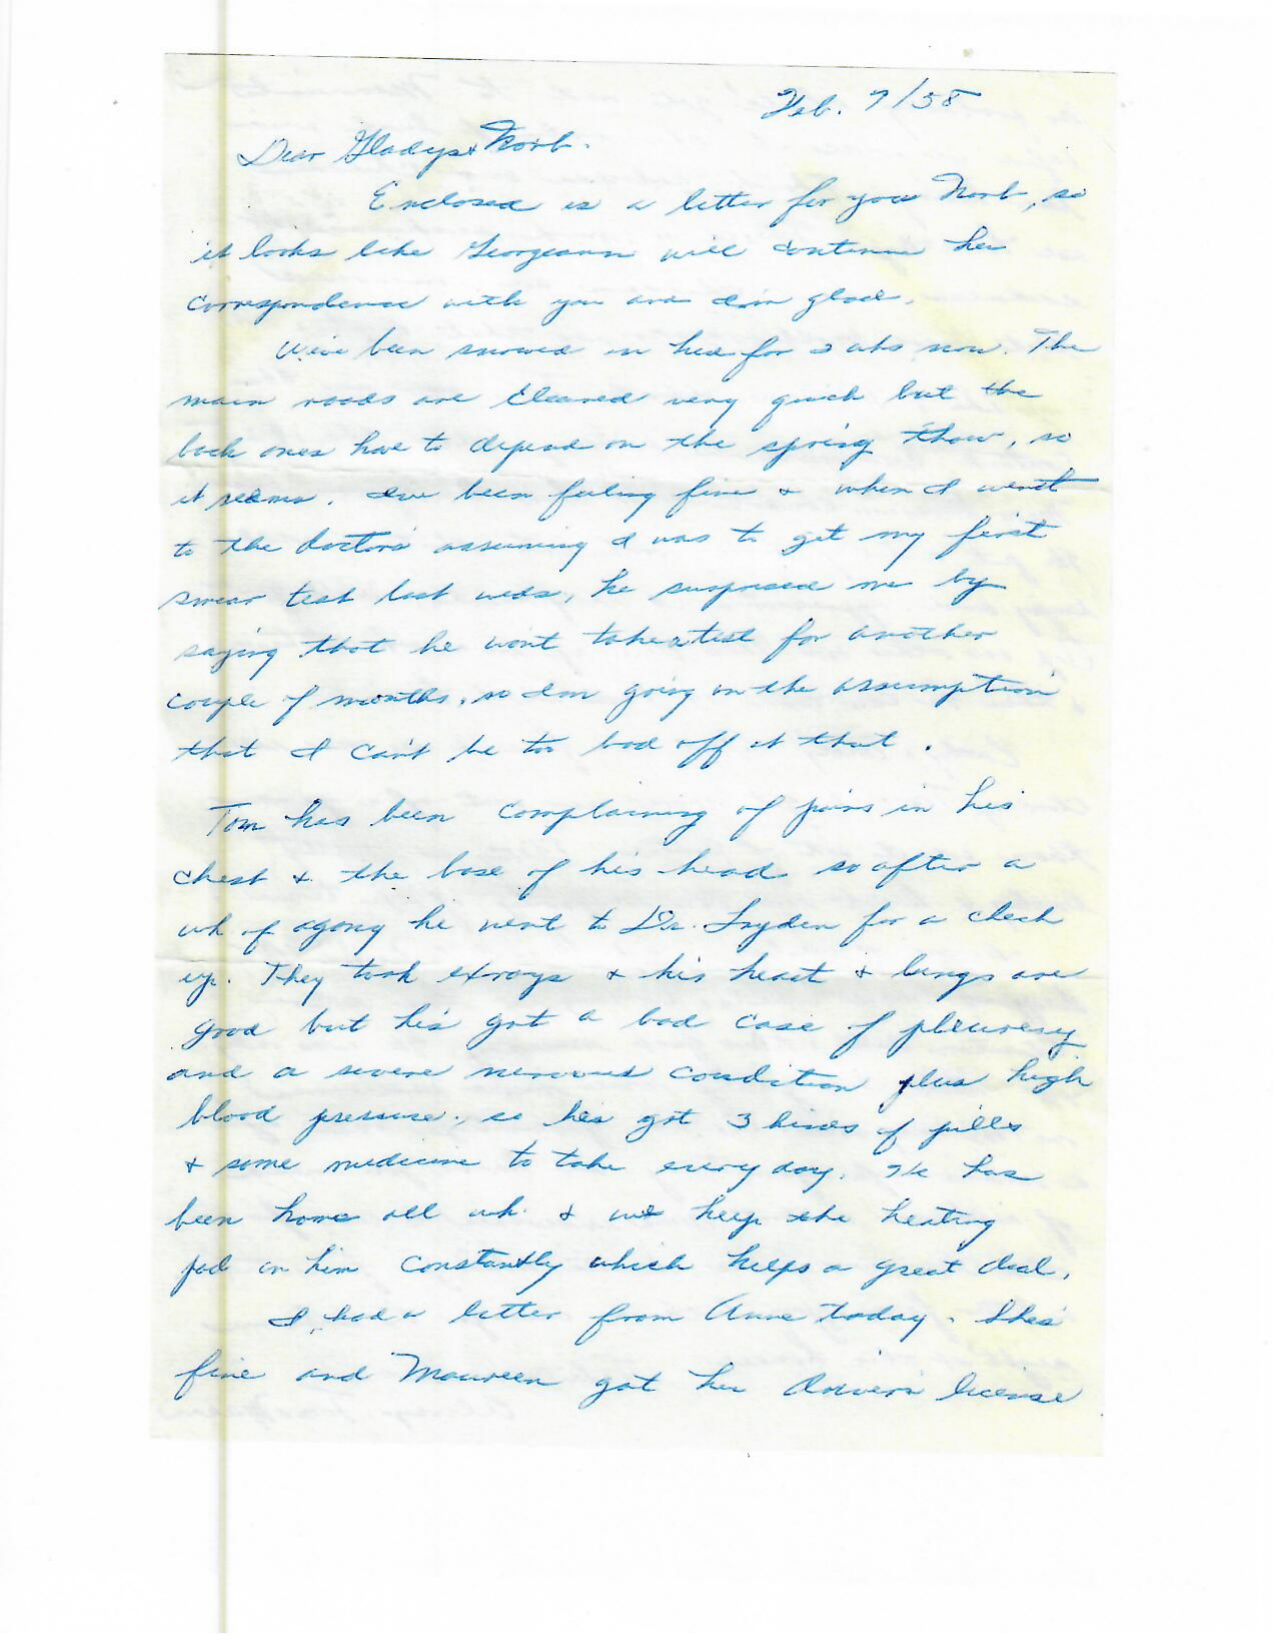 Feb. 7/58
Dear Gladys & Norb.
Enclosed is a letter for you Norb, so
it looks like Georgeann will continue her
correspondence with you and I'm glad.
We've been snowed in here for wks now. The
main roads are cleared very quick but the
back ones have to depend on the spring thaw, so
it seems. I've been feeling fine & when I went
to the doctors assuming I was to get my first
smear test last weds, he surprised me by
saying that he wont take a test for another
couple of months, so I'm going on the assumption
that I can't be too bad off at that.
Tom has been complaining of pains in his
chest & the base of his head so after a
wk of agony he went to Dr. for a check
up. They took exrays & his heart & lungs are
good but he's got a bad case of pleuresy
and a severe nervous condition plus high
blood pressure, so he's got 3 kinds of pills
& some medicine to take every day. He has
been home all wk. & we keep the heating
pad on him constantly which helps a great deal.
I had a letter from Anne today. She's
fine and Maureen got her driver's license